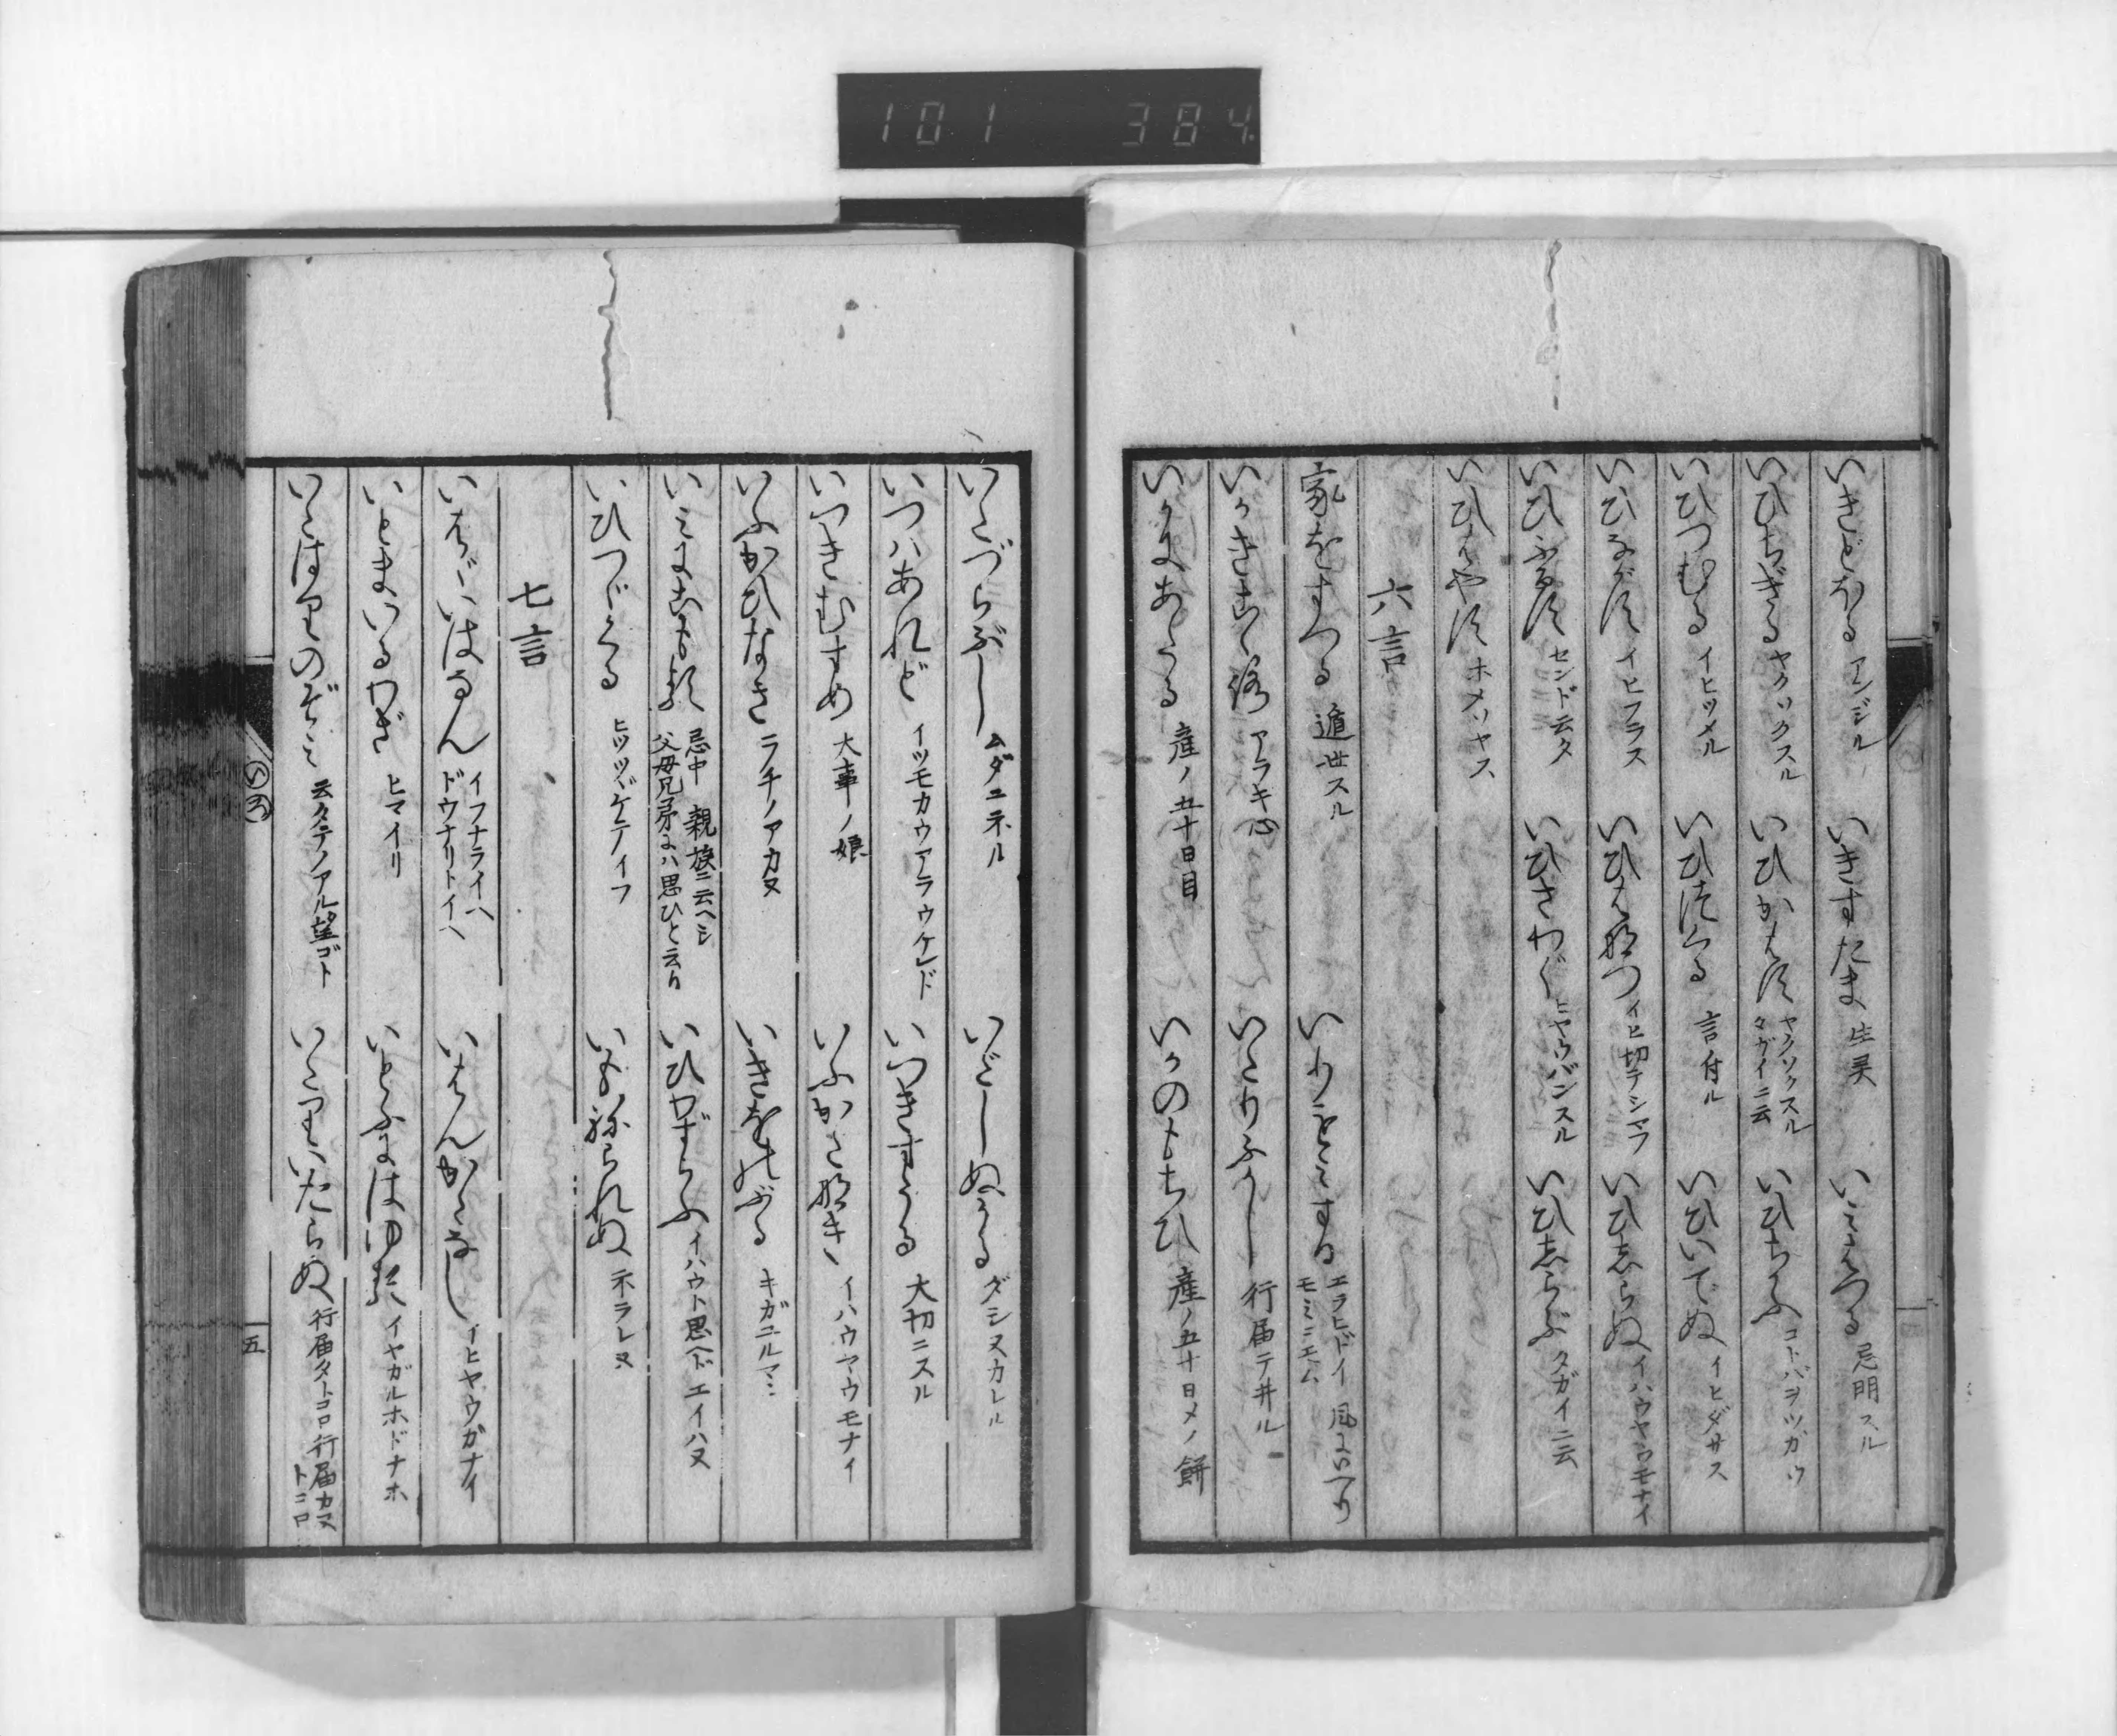 101 384
いきどほる アンジル いきすたま 生灵 いみはつる 忌明スル
いひちぎる ヤクソクスル いひかはす ヤクソクスル タガイニ云 いひちらふ コトバヲツガウ
いひつむる イヒツメル いひつくる 言付ル いひいでぬ イヒダサス
いひながす イヒフラス いひはなつ イヒ切テシマフ いひしらぬ イハウヤウモナイ
いひふるす センド云タ いひさわぐ ヒヤウバンスル いひしらぶ タガイニ云
いひはやす ホメソヤス
六言
家をすつる 遁世スル いりもみする エラヒドイ風にいへり モミニモム
いかきこゝろ アラキ心 いたりふかし 行届テ井ル
いかにあたる 産ノ五十日目 いかのもちひ 産ノ五十日メノ餅
いたづらぶし ムダニネル いどしぬかる ダシヌカレル
いつはあれど イツモカウアラウケレド いつきすうる 大切ニスル
いつきむすめ 大事ノ娘 いふかさなき イハウヤウモナイ
いふかひなき ラチノアカヌ いきをのぶる キガユルマル
いみにこもる 忌中 親族ニ云ヘシ 父母兄弟にハ思ひと云り いひわずらふ イハウト思ヘドエイハヌ
いひつゞくる ヒツヅケテイフ いもねられぬ ネラレヌ
七言
いはゞいはなん イフナライハ ドウナリトイヘ いはんかたなし イヒヤウガナイ
いとまいるわざ ヒマイリ いとふにはゆる イヤガルホドナホ
いたはりのぞみ 云タテノアル望ゴト いたりいたらぬ 行届タトコロ行届カヌトコロ
五